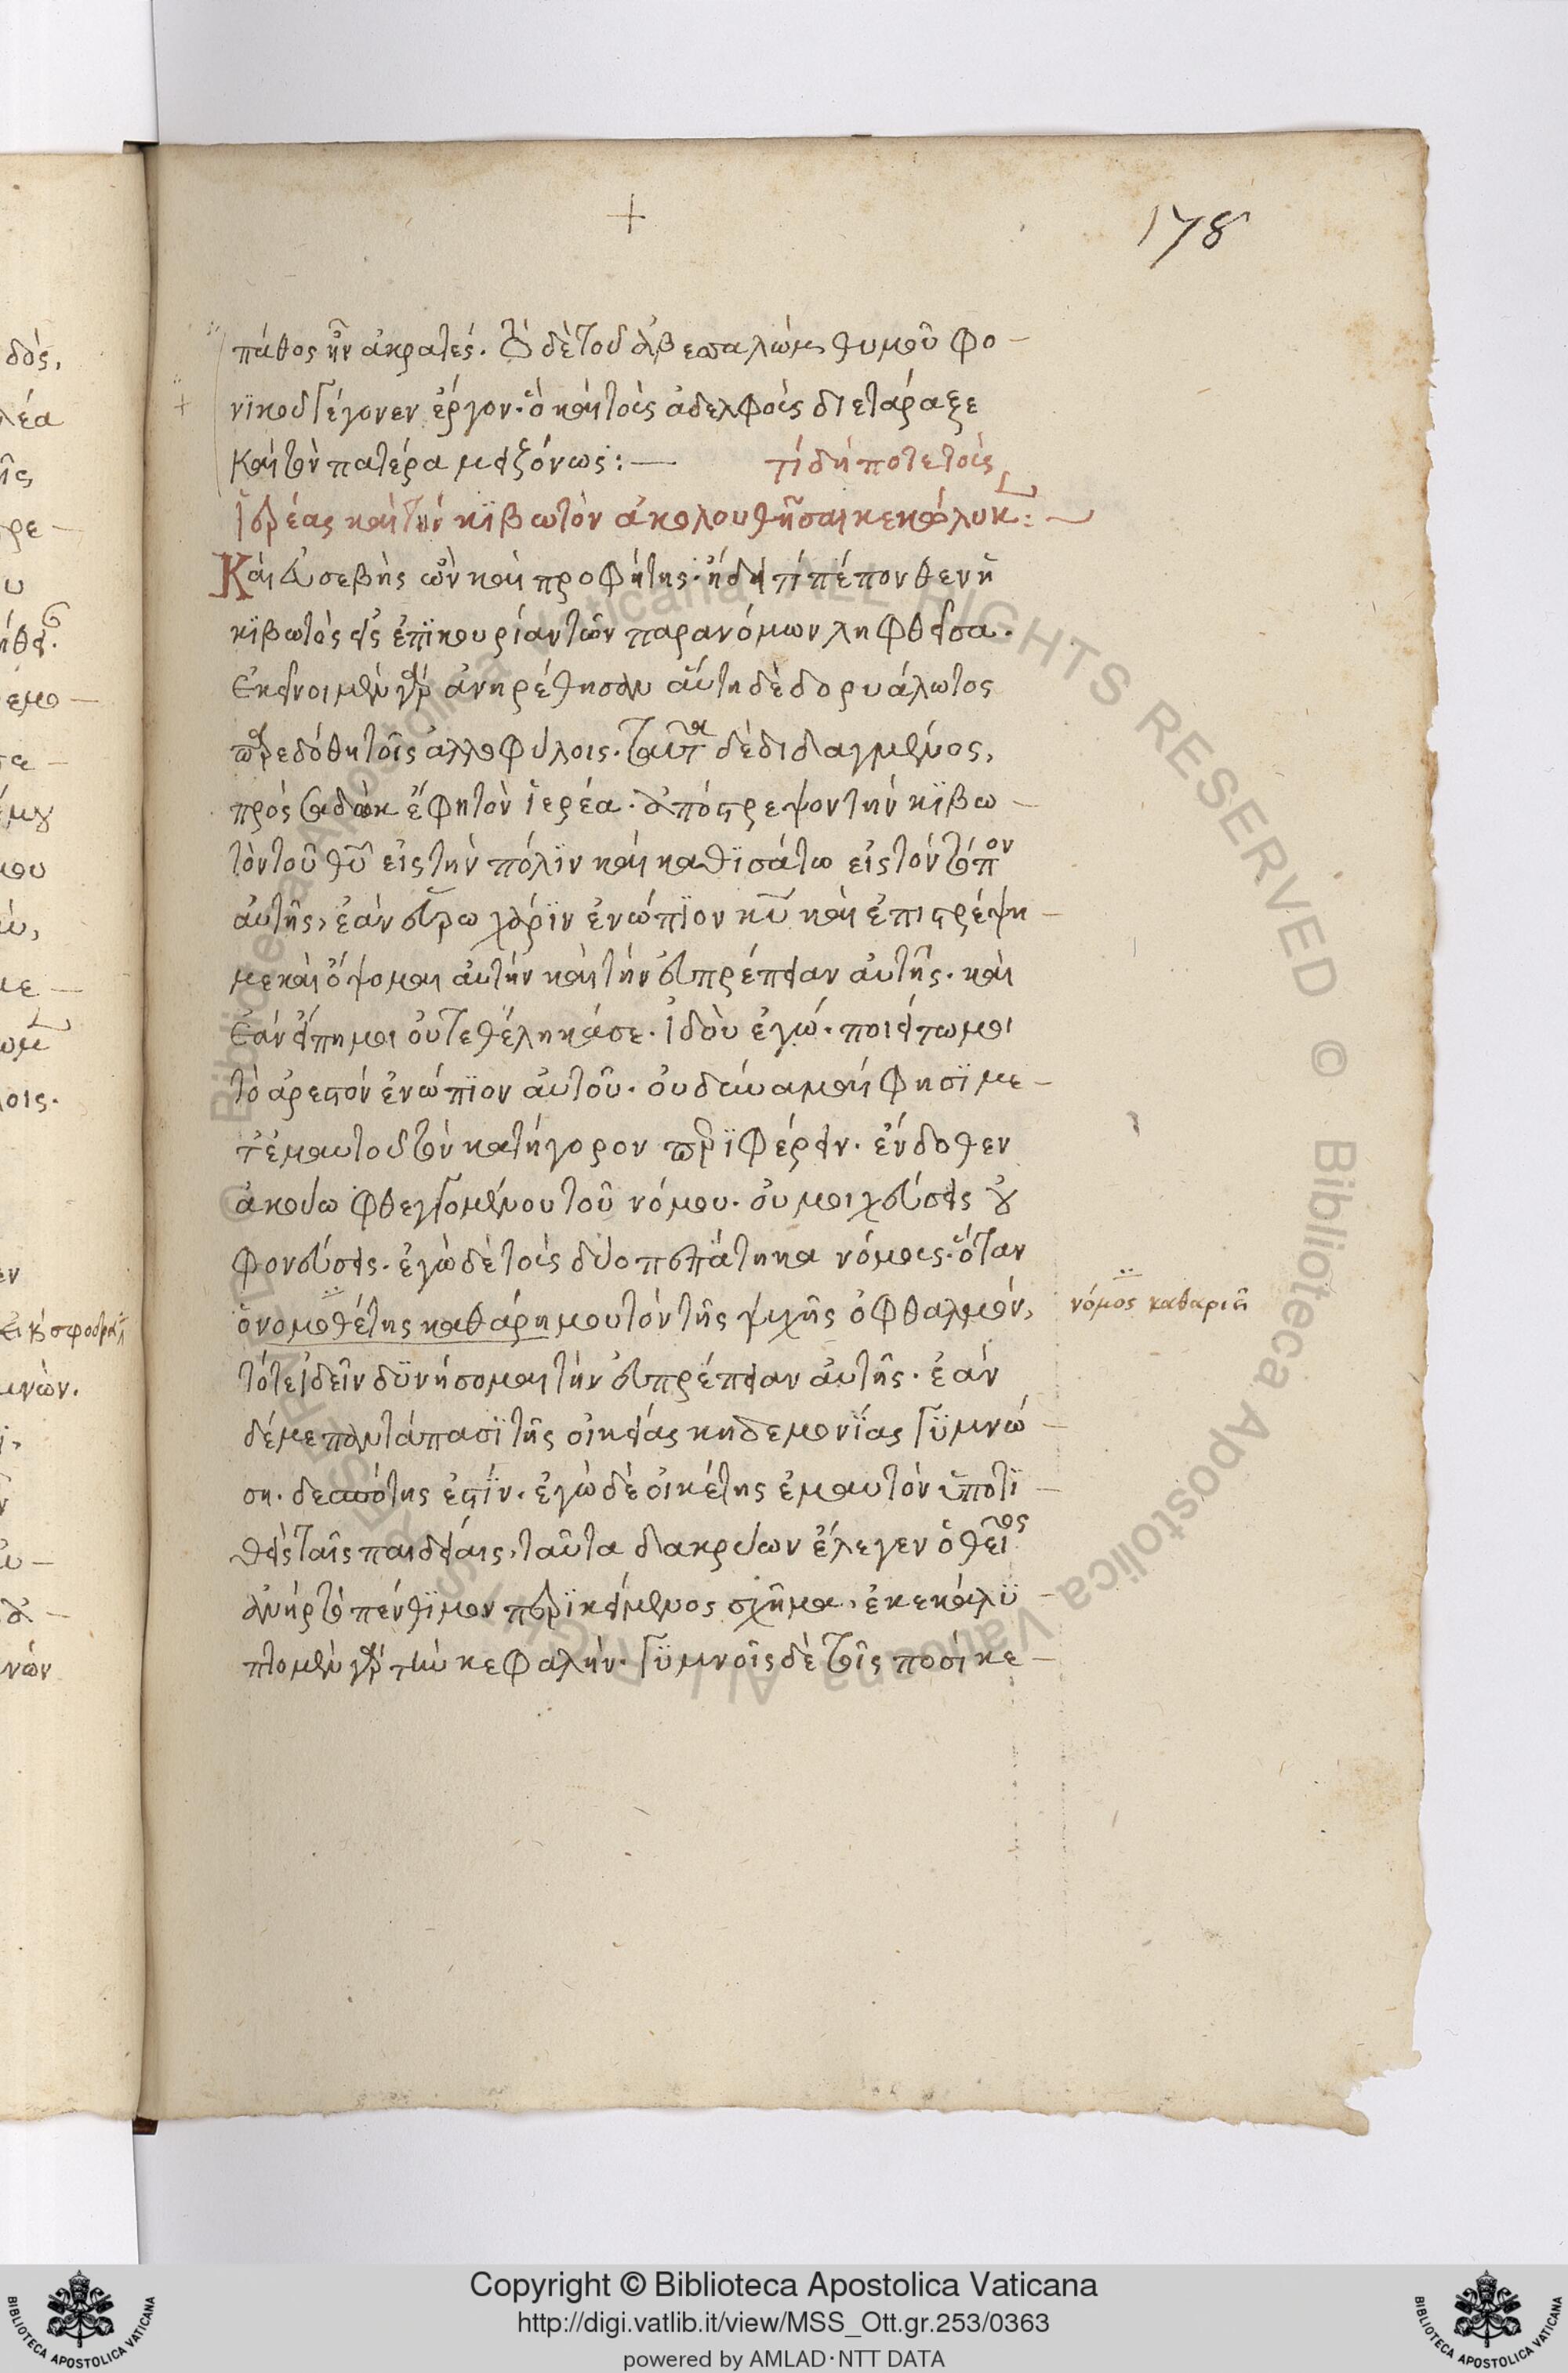 178
πάθος ἦν ἀκρατές. τὸ δὲ τοῦ ἀβεσσαλὼμ, θυμοῦ φο-
νϊκοῦ γέγονεν ἔργον. ὃ καὶ τοὺς ἀδελφοὺς διετάραξε
καὶ τὸν πατέρα μειζόνως:— τί δήποτε τοὺς
ἱερέας καὶ τὴν κϊβωτὸν ἀκολουθῆσαι κεκώλυκ:
Καὶ εὐσεβὴς ὢν καὶ προφήτης. ᾔδει τί πέπονθεν ἡ
κϊβωτὸς εἰς ἐπϊκουρίαν τῶν παρανόμων ληφθεῖσα.
ἐκεῖνοι μὲν γὰρ ἀνηρέθησαν αὕτη δὲ δορυάλωτος
παρεδόθη τοῖς ἀλλοφύλοις. ταῦτα δὲ διδαγμένος,
πρὸς σαδὼκ ἔφη τὸν ἱερέα. ἀπόστρεψον τὴν κϊβω-
τὸν τοῦ θυ εἰς τὴν πόλϊν καὶ καθϊσάτω εἰς τὸν τόπον
αὐτῆς, ἐὰν εὕρω χάρϊν ἐνώπϊον κυ καὶ ἐπιστρέψη-
με καὶ ὄψομαι αὐτὴν καὶ τὴν εὐπρέπειαν αὐτῆς. καὶ
ἐὰν εἴπη μοι οὐ τεθέληκά σε. ἰδοὺ ἐγώ. ποιείτω μοι
τὸ ἀρεστὸν ἐνώπϊον αὐτοῦ. οὐ δύναμαί φησϊ με-
τ' ἐμαυτοῦ τὸν κατήγορον περϊφέρειν. ἔνδοθεν
ἀκούω φθεγγομένου τοῦ νόμου. οὐ μοιχεύσεις οὐ
φονεύσεις. ἐγὼ δὲ τοὺς δύο πεπάτηκα νόμους. ὅταν
ὁ νομοθέτης καθάρη μου τὸν τῆς ψυχῆς ὀφθαλμόν,
νόμος καθαριεῖ
τότε ἰδεῖν δϋνήσομαι τὴν εὐπρέπειαν αὐτῆς. ἐὰν
δέ με παντάπασϊ τῆς οἰκείας κηδεμονΐας γϋμνώ-
ση. δεσπότης ἐστΐν. ἐγὼ δὲ οἰκέτης ἐμαυτὸν ὑποτϊ-
θεὶς ταῖς παιδείαις, ταῦτα δακρύων ἔλεγεν ὁ θεῖος
ἀνὴρ τὸ πένθϊμον περϊκείμενος σχῆμα. ἐκεκάλϋ-
πτο μὲν γὰρ τὴν κεφαλὴν. γϋμνοῖς δὲ τοῖς ποσί κε-
Copyright © Biblioteca Apostolica Vaticana
http://digi.vatlib.it/view/MSS_Ott.gr.253/0363
powered by AMLAD·NTT DATA